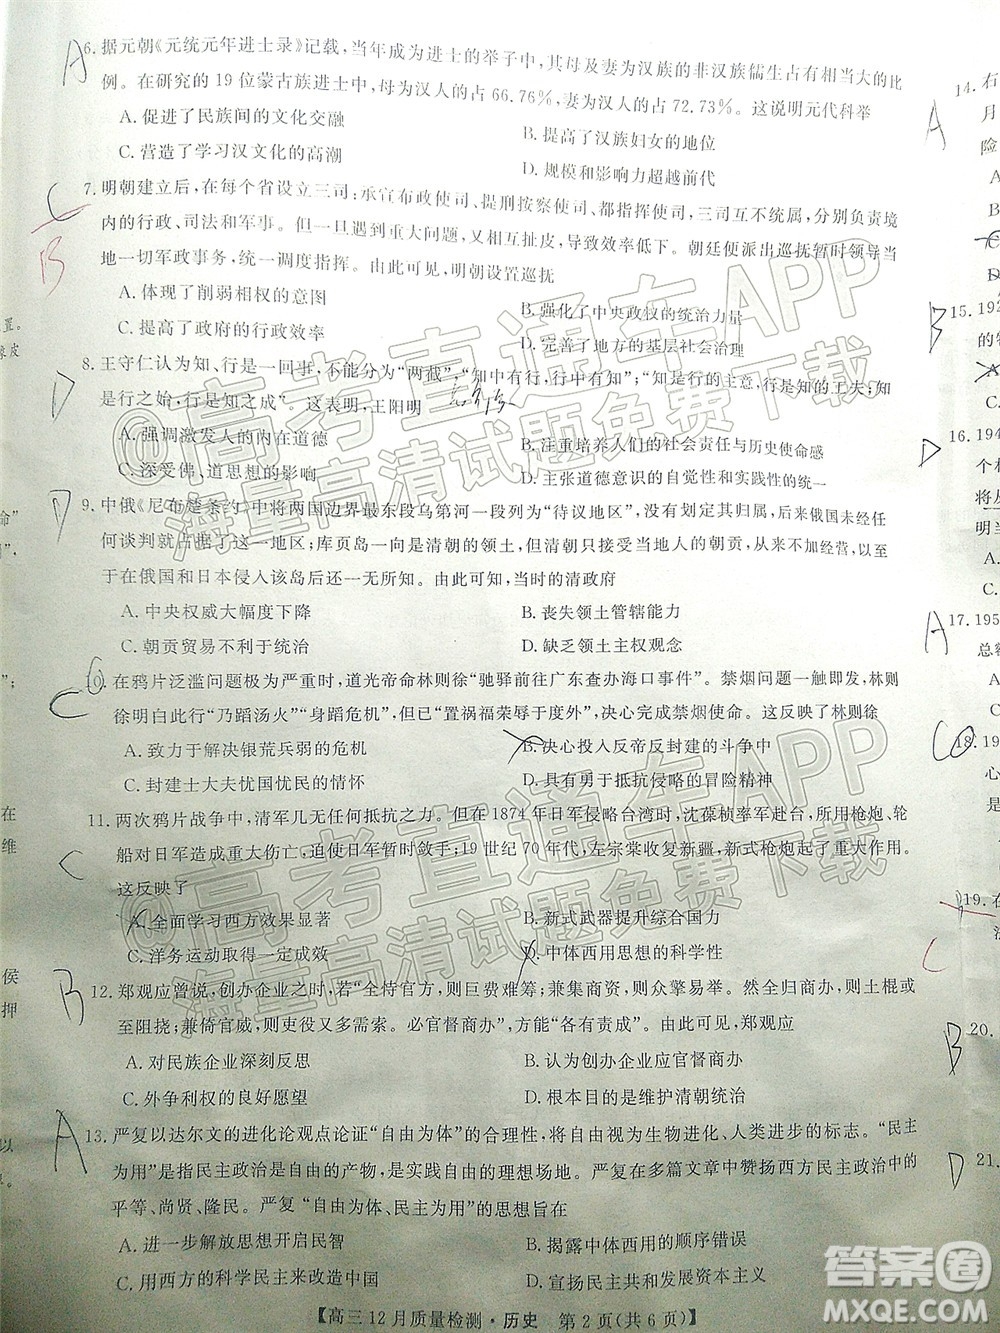 6. 据元朝《元统元年进士录》记载，当年成为进士的举子中，其母及妻为汉族的非汉族儒生占有相当大的比
例。在研究的 19 位蒙古族进士中，母为汉人的占 66.76%，妻为汉人的占 72.73%。这说明元代科举
A. 促进了民族间的文化交融
B. 提高了汉族妇女的地位
C. 营造了学习汉文化的高潮
D. 规模和影响力超越前代
7. 明朝建立后，在每个省设立三司：承宣布政使司、提刑按察使司、都指挥使司，三司互不统属，分别负责境
内的行政、司法和军事。但一旦遇到重大问题，又相互扯皮，导致效率低下。朝廷便派出巡抚暂时领导当
地一切军政事务，统一调度指挥。由此可见，明朝设置巡抚
A. 体现了削弱相权的意图
B. 强化了中央政权的统治力量
C. 提高了政府的行政效率
D. 完善了地方的基层社会治理
8. 王守仁认为知、行是一回事，不能分为“两截”，“知中有行，行中有知”；“知是行的主意，行是知的工夫；知
是行之始，行是知之成”。这表明，王阳明
A. 强调激发人的内在道德
B. 注重培养人们的社会责任与历史使命感
C. 深受佛、道思想的影响
D. 主张道德意识的自觉性和实践性
9. 中俄《尼布楚条约》中将两国边界最东段乌第河一段列为“待议地区”，以后划定其归属，后俄国未经任
何谈判就占据了这一地区；库页岛一向是清朝的领土，但清廷仅满足于当地人的朝贡，并不派官驻兵，以
至于在俄国和日本侵入该岛后还一无所知。由此可知，当时的清政府
A. 中央权威大幅度下降
B. 丧失领土管辖能力
C. 朝贡贸易不利于统治
D. 缺乏领土主权观念
10. 在鸦片泛滥问题极为严重时，道光帝命林则徐“驰驿前往广东查办海口事件”。禁烟问题一触即发，林则
徐明白此行“乃蹈汤火”“身蹈危机”，但已“置祸福荣辱于度外”，决心完成禁烟使命。这突出反映了林则徐
A. 致力于解决银荒兵弱的危机
B. 决心投入反帝反封建的斗争中
C. 封建士大夫忧国忧民的情怀
D. 具有勇于抵抗侵略的冒险精神
11. 两次鸦片战争中，清军几无任何抵抗之力。但在 1874 年日军侵略台湾时，沈葆桢率军赴台，所用枪炮、轮
船对日军造成重大伤亡，迫使日军暂时敛手；19 世纪 70 年代，左宗棠收复新疆，新式枪炮起了重大作用。
这反映了
A. 全面学习西方效果显著
B. 新式武器提升综合国力
C. 洋务运动取得一定成效
D. 中体西用思想的科学性
12. 郑观应曾说，创办企业之时，若“全恃官方，则巨费难筹；兼集商资，则众擎易举。然全归商办，则土棍或
至阻挠；兼倚官威，则吏役又多需索。必官督商办”，方能“各有责成”。由此可见，郑观应
A. 对民族企业深刻反思
B. 认为创办企业应官督商办
C. 外争利权的良好愿望
D. 根本目的是维护清朝统治
13. 严复以达尔文的进化论观点论证“自由为体”的合理性，将自由视为生物进化、人类进步的标志。“民主
为用”是指民主政治是自由的产物，是实践自由的理想场地。严复在多篇文章中赞扬西方民主政治中的
平等、尚贤、隆民。严复“自由为体、民主为用”的思想旨在
A. 进一步解放思想开启民智
B. 揭露中体西用的顺序错误
C. 用西方的科学民主来改造中国
【高三 12 月质量检测·历史 第 2 页(共 6 页)】
14. 右
月
险
A
B
C
D
15. 192
的
16. 194
个
将
明
A
C
17. 195
总
18. 19
心
A
C
19. 在
20.
21.
置。
命”
在
维
侯
押
以
@高考直通车APP
海量高清试题免费下载
@高考直通车APP
海量高清试题免费下载
答案圈
MXQE.COM